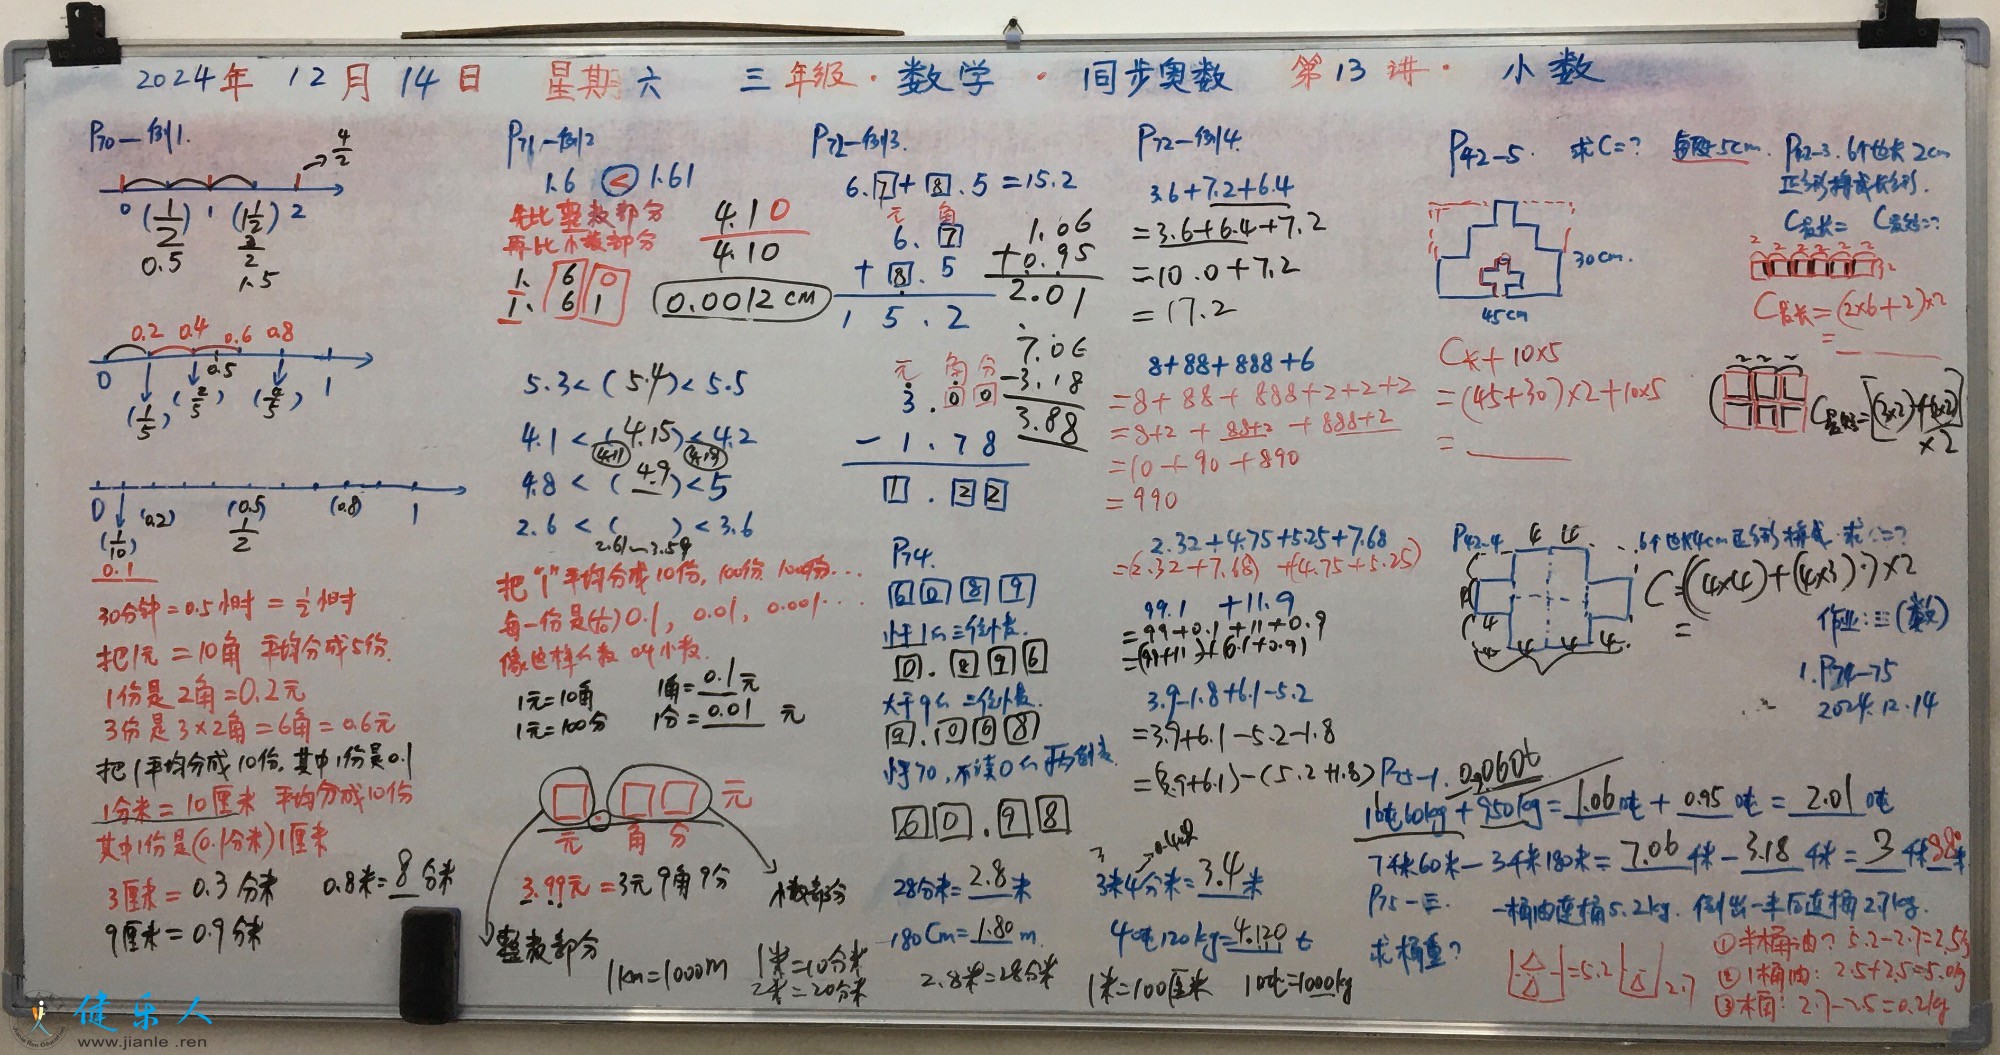 2024年 12月 14日 星期六 三年级·数学·同步奥数 第13讲·小数
P70—例1.
4/2
0 (1/2) 1 (1 1/2) 2
0.5
3/2
1.5
0.2 0.4 0.6 0.8
0 0.5 1
(1/5) (2/5) (4/5)
0 (0.2) (0.5) (0.8) 1
(1/10) 1/2
0.1
30分钟=0.5小时=1/2小时
把1元=10角 平均分成5份.
1份是2角=0.2元
3份是3×2角=6角=0.6元
把1平均分成10份,其中1份是0.1
1分米=10厘米 平均分成10份
其中1份是(0.1分米)1厘米
3厘米=0.3分米 0.8米=8分米
9厘米=0.9分米
P71—例2
1.6 < 1.61
先比整数部分
再比小数部分
1. 6 0
1. 6 1
4.10
4.10
0.0012cm
5.3<(5.4)<5.5
4.1<(4.15)<4.2
4.11 4.19
4.8<(4.9)<5
2.6<( )<3.6
2.61~3.59
把"1"平均分成10份,100份,1000份...
每一份是(1/10)0.1, 0.01, 0.001...
像这样的数叫小数.
1元=10角 1角=0.1元
1元=100分 1分=0.01元
□.□□元
元 角 分
3.99元=3元9角9分
小数部分
整数部分
1km=1000m
1米=10分米
2米=20分米
P72—例3.
6.7+8.5=15.2
元 角
6.7
+8.5
15.2
1.06
+0.95
2.01
元 角 分
3.00
-1.78
1.22
7.06
-3.18
3.88
P74.
6 0 8 9
小于1的三位小数.
0.896
大于9的三位小数.
9.068
60.98
28分米=2.8米
180cm=1.80m
2.8米=28分米
P72—例4.
3.6+7.2+6.4
=3.6+6.4+7.2
=10.0+7.2
=17.2
8+88+888+6
=8+88+888+2+2+2
=8+2+88+2+888+2
=10+90+890
=990
2.32+4.75+5.25+7.68
=(2.32+7.68)+(4.75+5.25)
99.1+11.9
=99+0.1+11+0.9
=(99+11)+(0.1+0.9)
3.9-1.8+6.1-5.2
=3.9+6.1-5.2-1.8
=(3.9+6.1)-(5.2+1.8)
3米4分米=3.4米
4吨120kg=4.120t
1米=100厘米 1吨=1000kg
P42-5. 求C=? 每段5cm.
30cm.
45cm
C长+10×5
=(45+30)×2+10×5
=
P42-3. 6个边长2cm
正方形拼成长方形.
C最长= C最短=?
2 2 2 2 2 2
2
C最长=(2×6+2)×2
=
2 2 2
C最短=[(3×2)+(2×2)]
×2
P42-4. 6个边长4cm正方形拼成.求C=?
4 4
4 4 4 4 4
C=((4×4)+(4×3))×2
=
作业:三(数)
1.P74-75
2024.12.14
P75-1. 0.060t
1吨60kg+950kg=1.06吨+0.95吨=2.01吨
7千米60米-3千米180米=7.06千米-3.18千米=3千米88米
P75-三. 一桶油连桶5.2kg.倒出一半后连桶2.7kg.
求桶重?
=5.2 2.7
①半桶油? 5.2-2.7=2.5kg
②1桶油: 2.5+2.5=5.0kg
③桶: 2.7-2.5=0.2kg
健乐人
www.jianle.ren